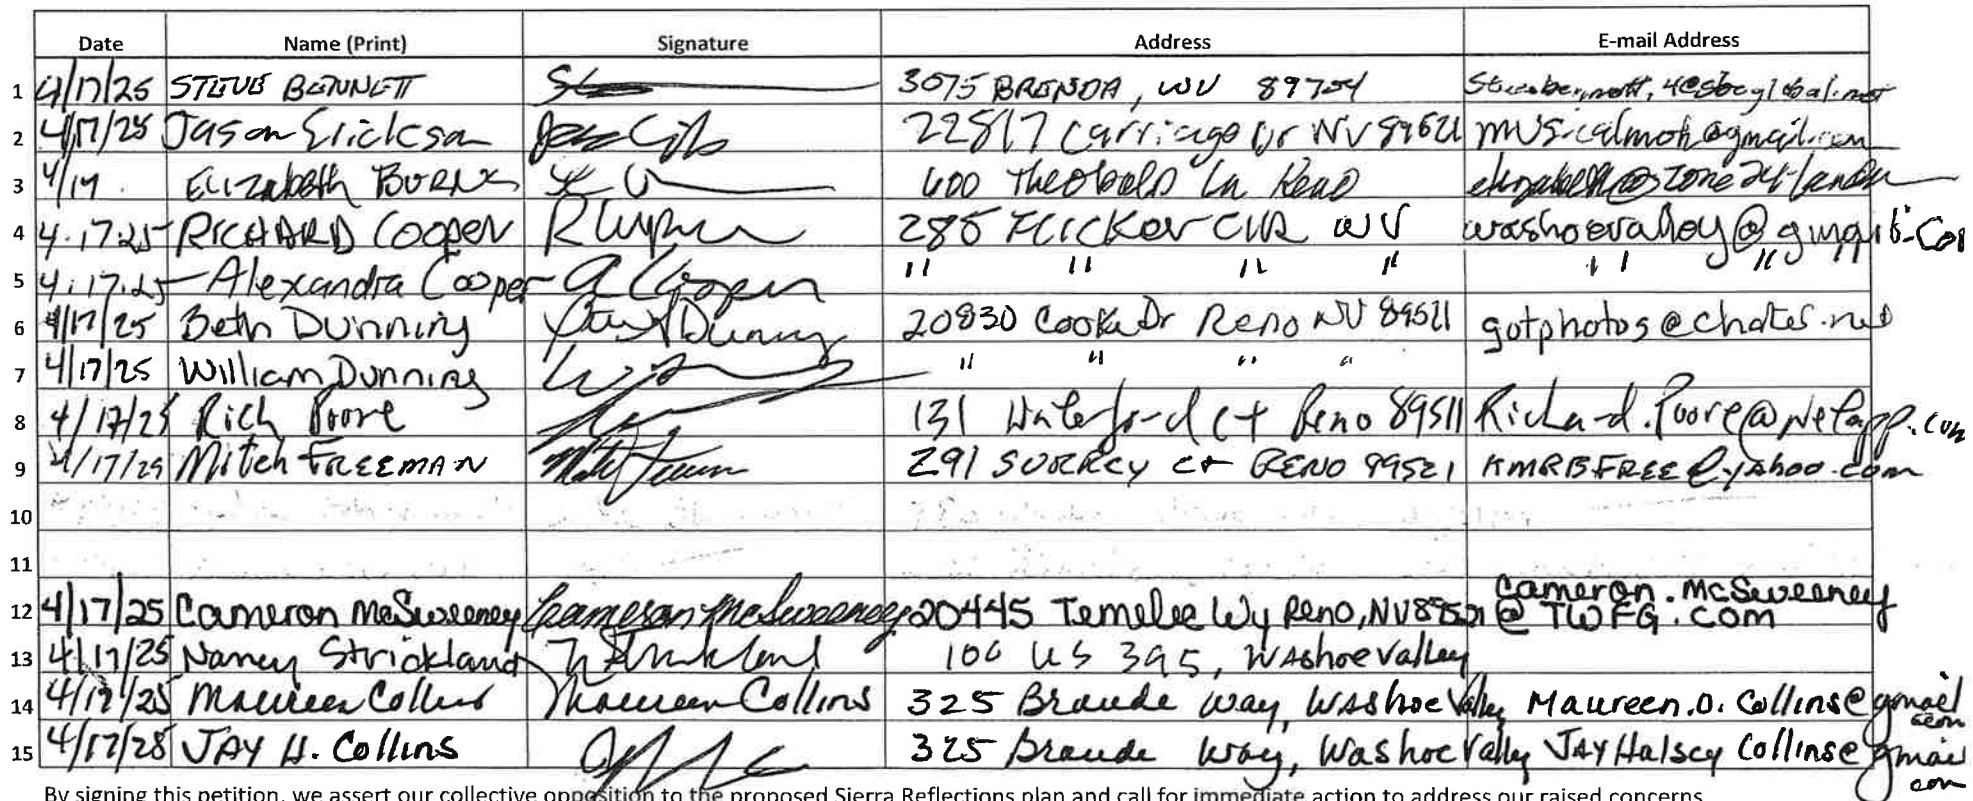 Date Name (Print) Signature Address E-mail Address
1 4/17/25 STEVE BENNETT 3075 BRENDA, WV 89704
2 4/17/25 Jason Erickson 22817 Carriage Dr NV 89521 musicalmoh@gmail.com
3 4/17 Elizabeth BURNS 400 Theobald Ln Reno
4 4.17.25 RICHARD Cooper 285 FLICKER CIR WV washoevalley@gmail.com
5 4.17.25 Alexandra Cooper A Cooper " " " " " "
6 4/17/25 Beth Dunning 20830 Cooke Dr Reno NV 89521 gotphotos@charter.net
7 4/17/25 William Dunning " " " "
8 4/17/25 Rich Poore 131 Waterford Ct Reno 89511 Richard.Poore@NetApp.com
9 4/17/25 Mitch FREEMAN 291 SURREY Ct RENO 89521 KMRBFREE@yahoo.com
10
11
12 4/17/25 Cameron McSweeney Cameron McSweeney 20445 Temelec Wy Reno, NV 89521 Cameron.McSweeney
@TWFG.COM
13 4/17/25 Nancy Strickland N Strickland 100 US 395, Washoe Valley
14 4/17/25 Maureen Collins Maureen Collins 325 Braude Way, Washoe Valley Maureen.O.Collins@gmail
com
15 4/17/25 JAY H. Collins 325 Braude Way, Washoe Valley JAYHalseyCollins@gmail
com
By signing this petition, we assert our collective opposition to the proposed Sierra Reflections plan and call for immediate action to address our raised concerns